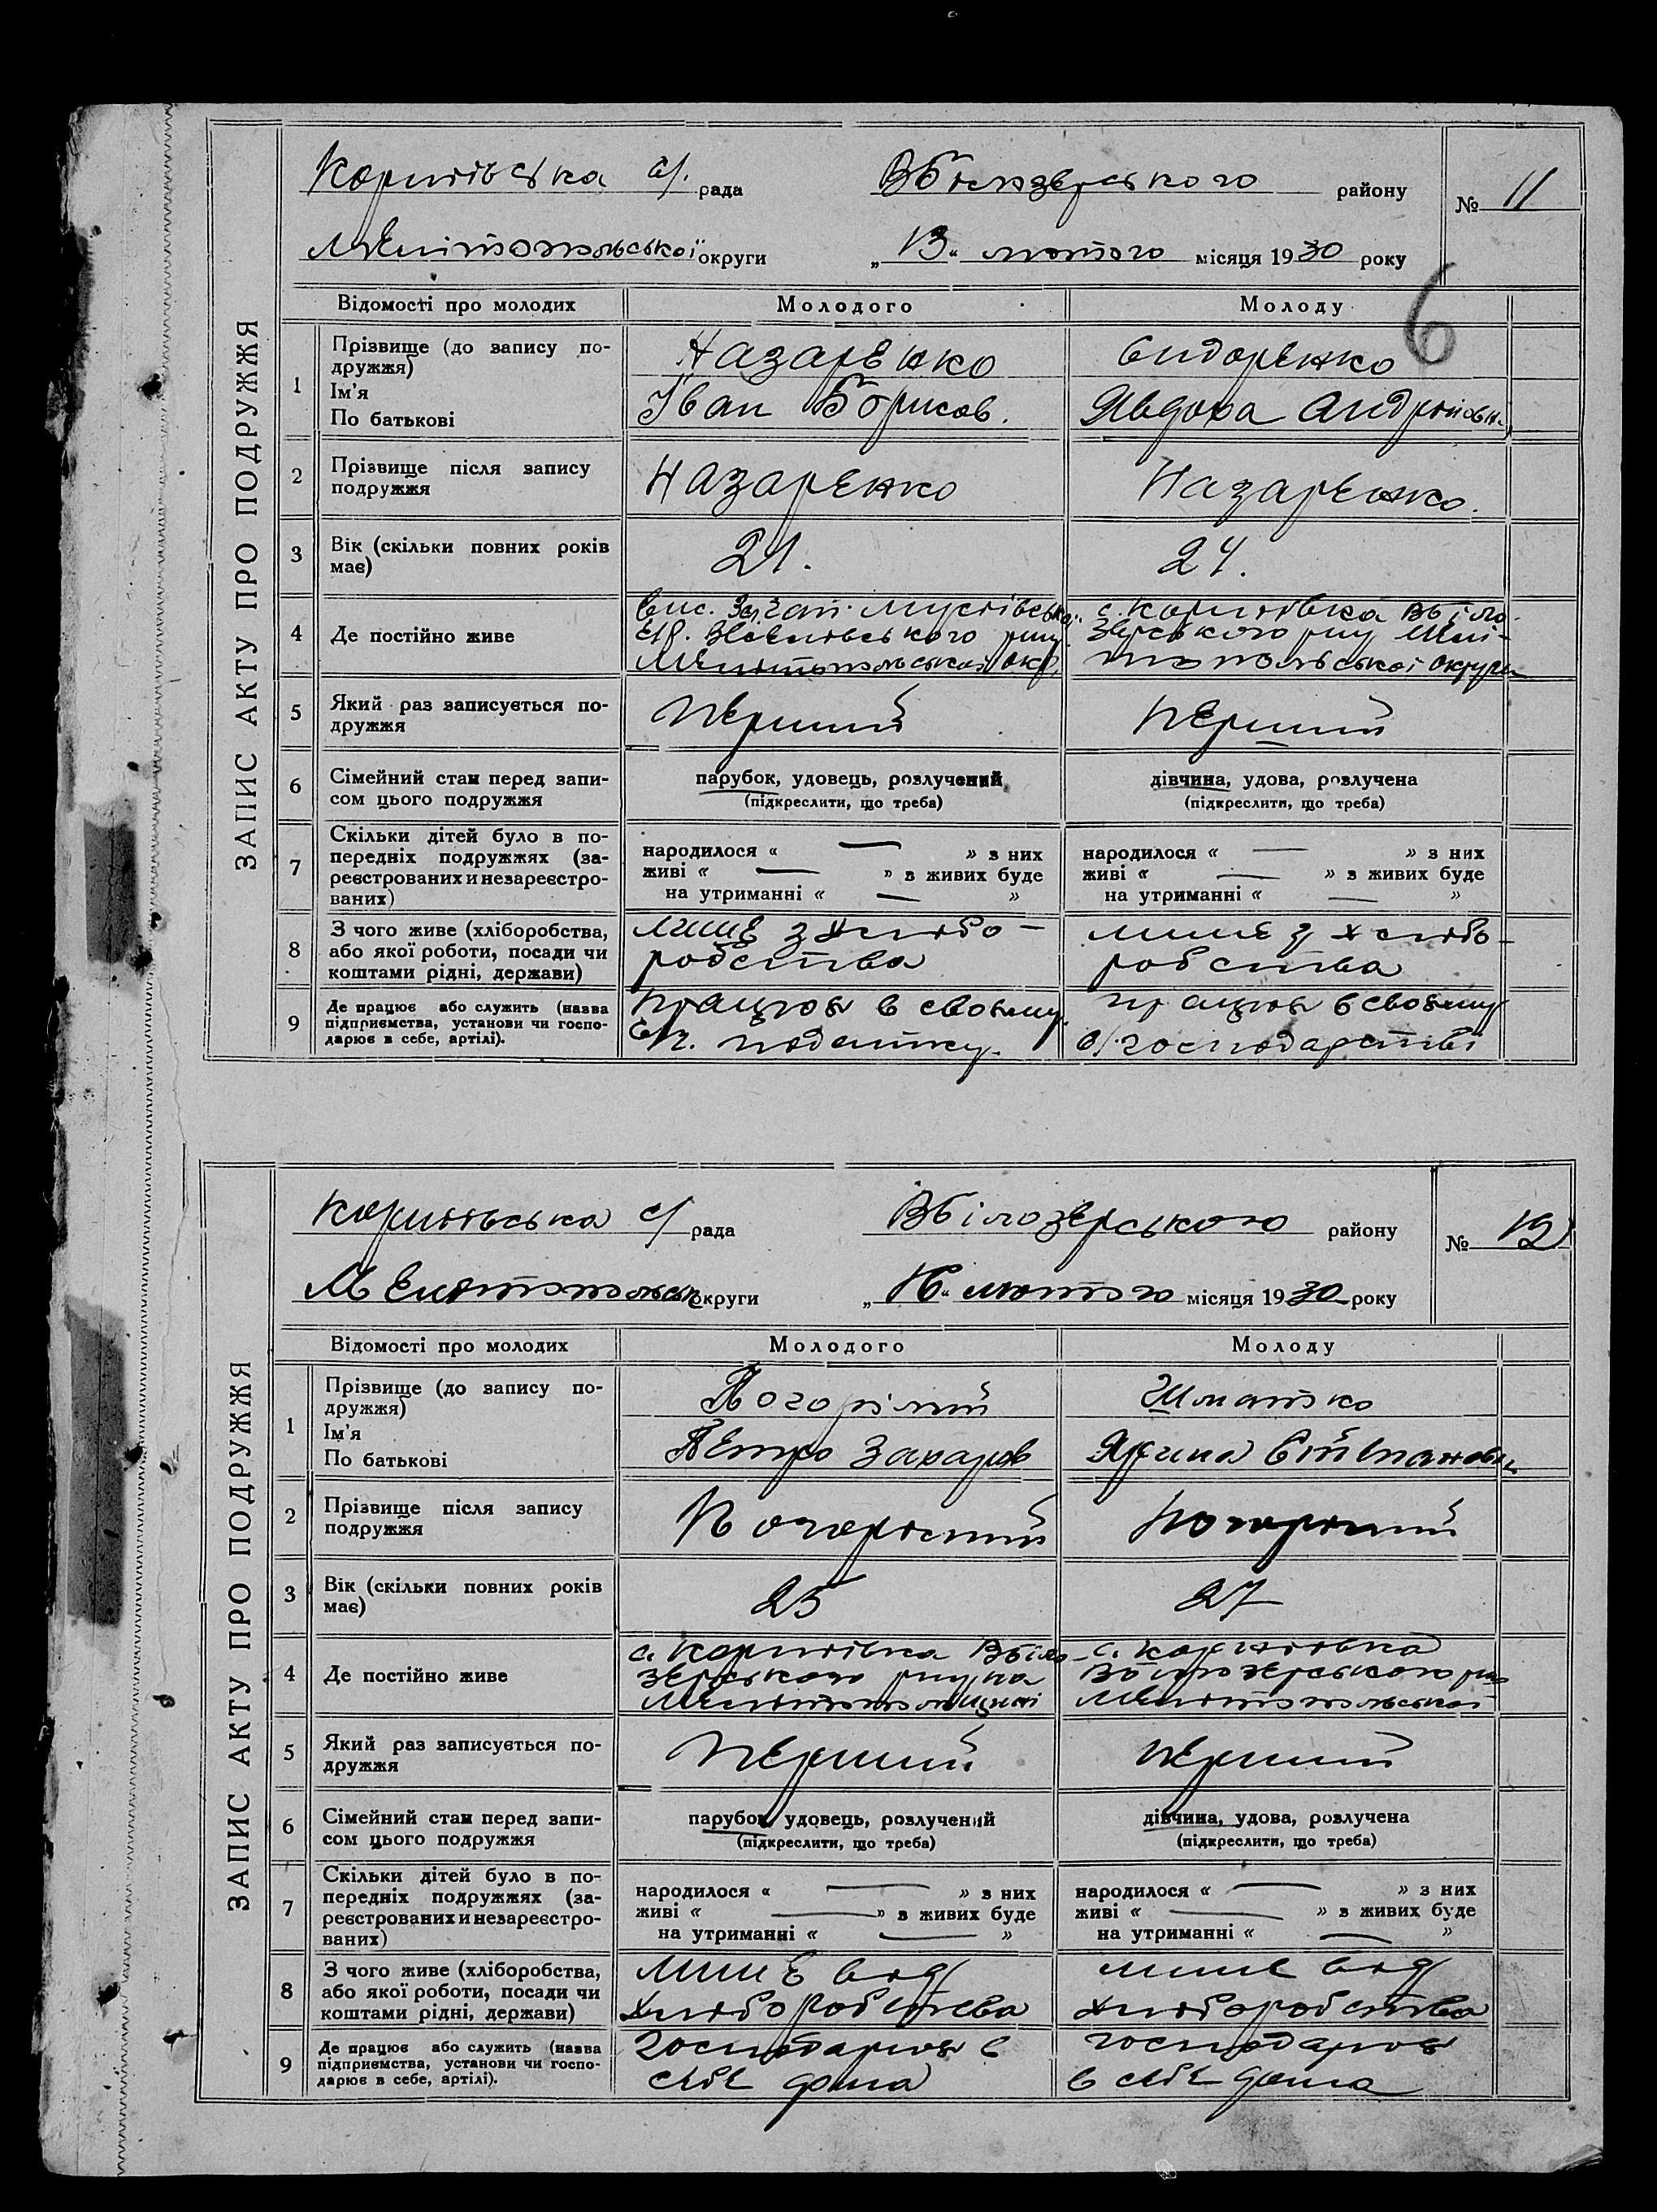 ЗАПИС АКТУ ПРО ПОДРУЖЖЯ
с/. рада ВБілозерського району № 11
Мелітопольської округи „13“ лютого місяця 1930 року
6
Відомості про молодих Молодого Молоду
1 Прізвище (до запису по-
дружжя)
Ім'я
По батькові
Назаренко
Іван Борисов.
Сидоренко
Явдоха Андріївн.
2 Прізвище після запису
подружжя
Назаренко
Назаренко.
3 Вік (скільки повних років
має)
21.
24.
4 Де постійно живе
Мелітопольської окр.
с. ВБіло-
зерського рну Мелі-
топольської округи
5 Який раз записується по-
дружжя
Перший
Перший
6 Сімейний стан перед запи-
сом цього подружжя
парубок, удовець, розлучений
(підкреслити, що треба)
дівчина, удова, розлучена
(підкреслити, що треба)
7 Скільки дітей було в по-
передніх подружжях (за-
реєстрованих и незареєстро-
ваних)
народилося « — » з них
живі « — » з живих буде
на утриманні « — »
народилося « — » з них
живі « — » з живих буде
на утриманні « — »
8 З чого живе (хліборобства,
або якої роботи, посади чи
коштами рідні, держави)
лише з хлібо-
робства
лише з хлібо-
робства
9 Де працює або служить (назва
підприємства, установи чи госпо-
дарює в себе, артілі).
працює в своєму
працює в своєму
с/. господарстві
ЗАПИС АКТУ ПРО ПОДРУЖЖЯ
с/ рада ВБілозерського району № 12
Мелітопольськ округи „16“ лютого місяця 1930 року
Відомості про молодих Молодого Молоду
1 Прізвище (до запису по-
дружжя)
Ім'я
По батькові
Погорілий
Петро Захаров
Шматко
Ярина Степановн
2 Прізвище після запису
подружжя
Погорілий
Погорілий
3 Вік (скільки повних років
має)
25
27
4 Де постійно живе
с. ВБіло-
зерського рну на
Мелітопольщині
с.
ВБілозерського рну
Мелітопольської
5 Який раз записується по-
дружжя
Перший
Перший
6 Сімейний стан перед запи-
сом цього подружжя
парубок, удовець, розлучений
(підкреслити, що треба)
дівчина, удова, розлучена
(підкреслити, що треба)
7 Скільки дітей було в по-
передніх подружжях (за-
реєстрованих и незареєстро-
ваних)
народилося « — » з них
живі « — » з живих буде
на утриманні « — »
народилося « — » з них
живі « — » з живих буде
на утриманні « — »
8 З чого живе (хліборобства,
або якої роботи, посади чи
коштами рідні, держави)
лише від
хліборобства
лише від
хліборобства
9 Де працює або служить (назва
підприємства, установи чи госпо-
дарює в себе, артілі).
господарює в
себе дома
господарює
в себе дома